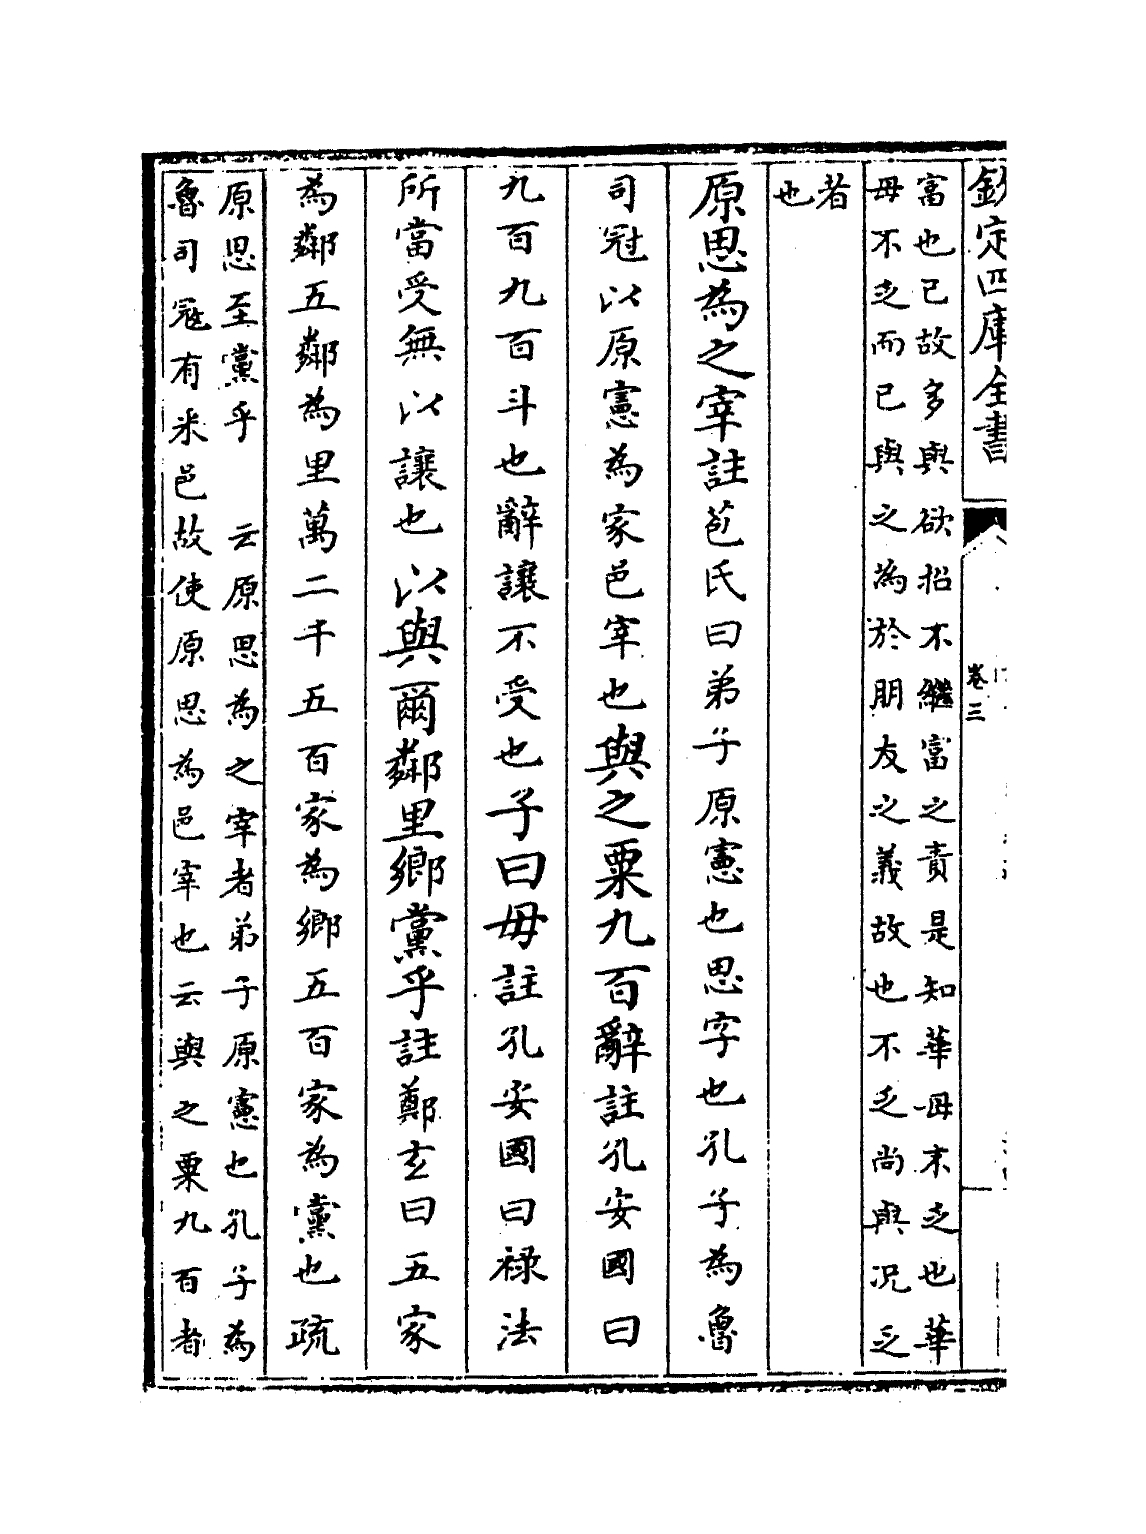 欽定四庫全書
卷三
富也已故多與欲招不繼富之責是知華母未乏也華
毋不乏而已與之為於朋友之義故也不乏尚與况乏
者
也
原思為之宰註苞氏曰弟子原憲也思字也孔子為魯
司冦以原憲為家邑宰也與之粟九百辭註孔安國曰
九百九百斗也辭讓不受也子曰毋註孔安國曰祿法
所當受無以讓也以與爾鄰里鄉黨乎註鄭玄曰五家
為鄰五鄰為里萬二千五百家為鄉五百家為黨也疏
原思至黨乎　云原思為之宰者弟子原憲也孔子為
魯司冦有米邑故使原思為邑宰也云與之粟九百者